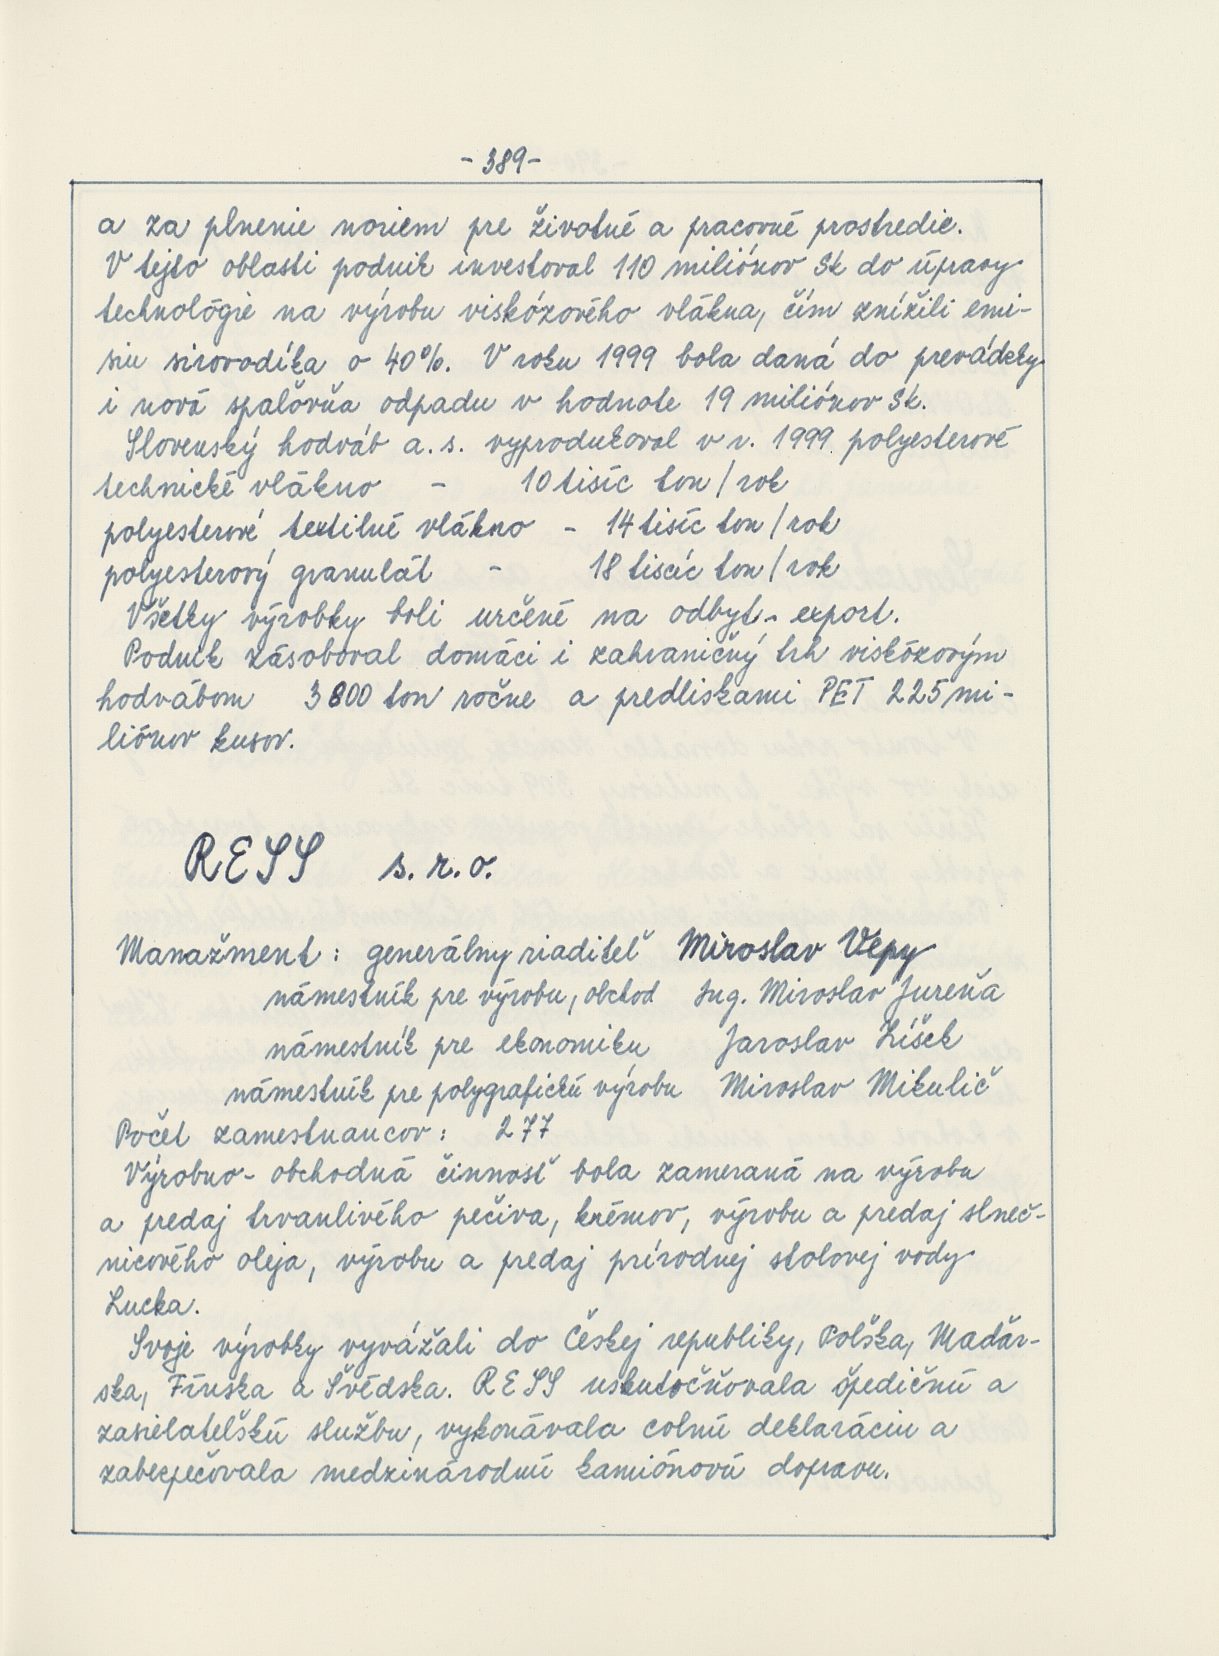 - 389 -
a za plnenie noriem pre životné a pracovné prostredie.
V tejto oblasti podnik investoval 110 miliónov Sk do úpravy
technológie na výrobu viskózového vlákna, čím znížili emi-
siu sirovodíka o 40%. V roku 1999 bola daná do prevádzky
i nová spaľovňa odpadu v hodnote 19 miliónov Sk.
Slovenský hodváb a.s. vyprodukoval v r. 1999 polyesterové
technické vlákno - 10 tisíc ton/rok
polyesterové textilné vlákno - 14 tisíc ton/rok
polyesterový granulát - 18 tisíc ton/rok
Všetky výrobky boli určené na odbyt - export.
Podnik zásoboval domáci i zahraničný trh viskózovým
hodvábom 3800 ton ročne a predliskami PET 225 mi-
liónov kusov.
RESS s.r.o.
Manažment: generálny riaditeľ Miroslav Vepy
námestník pre výrobu, obchod Ing. Miroslav Jureňa
námestník pre ekonomiku Jaroslav Líšek
námestník pre polygrafickú výrobu Miroslav Mikulič
Počet zamestnancov: 277
Výrobno - obchodná činnosť bola zameraná na výrobu
a predaj trvanlivého pečiva, krémov, výrobu a predaj slneč-
nicového oleja, výrobu a predaj prírodnej stolovej vody
Lucka.
Svoje výrobky vyvážali do Českej republiky, Poľska, Maďar-
ska, Fínska a Švédska. RESS uskutočňovala špedičnú a
zasielateľskú službu, vykonávala colnú deklaráciu a
zabezpečovala medzinárodnú kamiónovú dopravu.